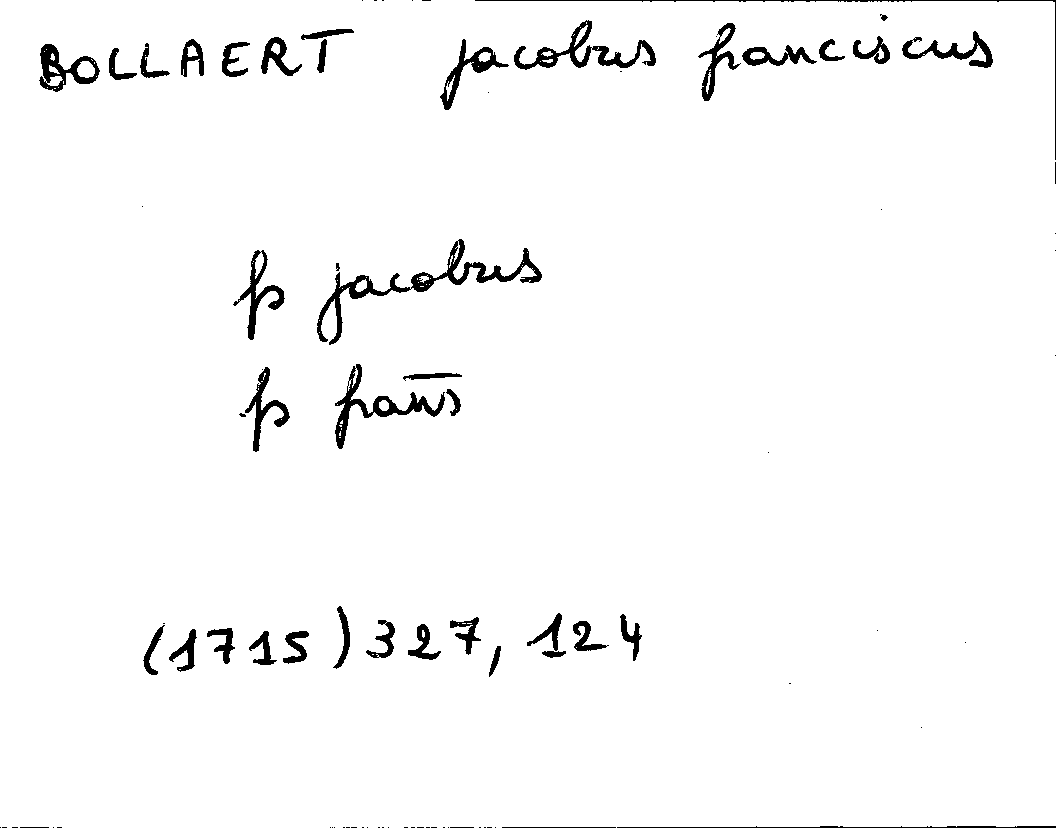 BOLLAERT jacobus franciscus
fs jacobus
fs frans
(1715) 327, 124